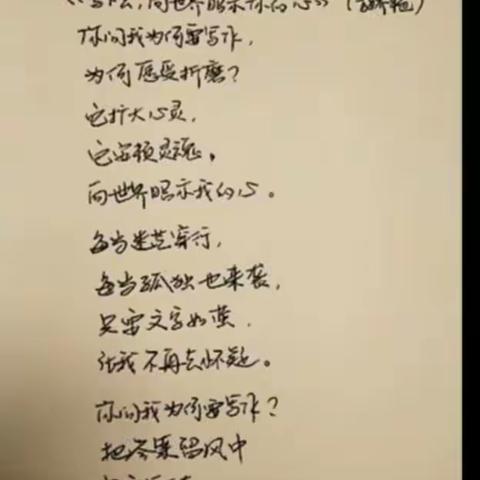 向世界昭示你的心》
你问我为何要写作，
为何愿受折磨？
它扩大心灵，
它安顿灵魂，
向世界昭示我的心。
每当迷茫穿行，
每当孤独也来袭，
只要文字如萤，
让我不再去怀疑。
你问我为何要写作？
风中